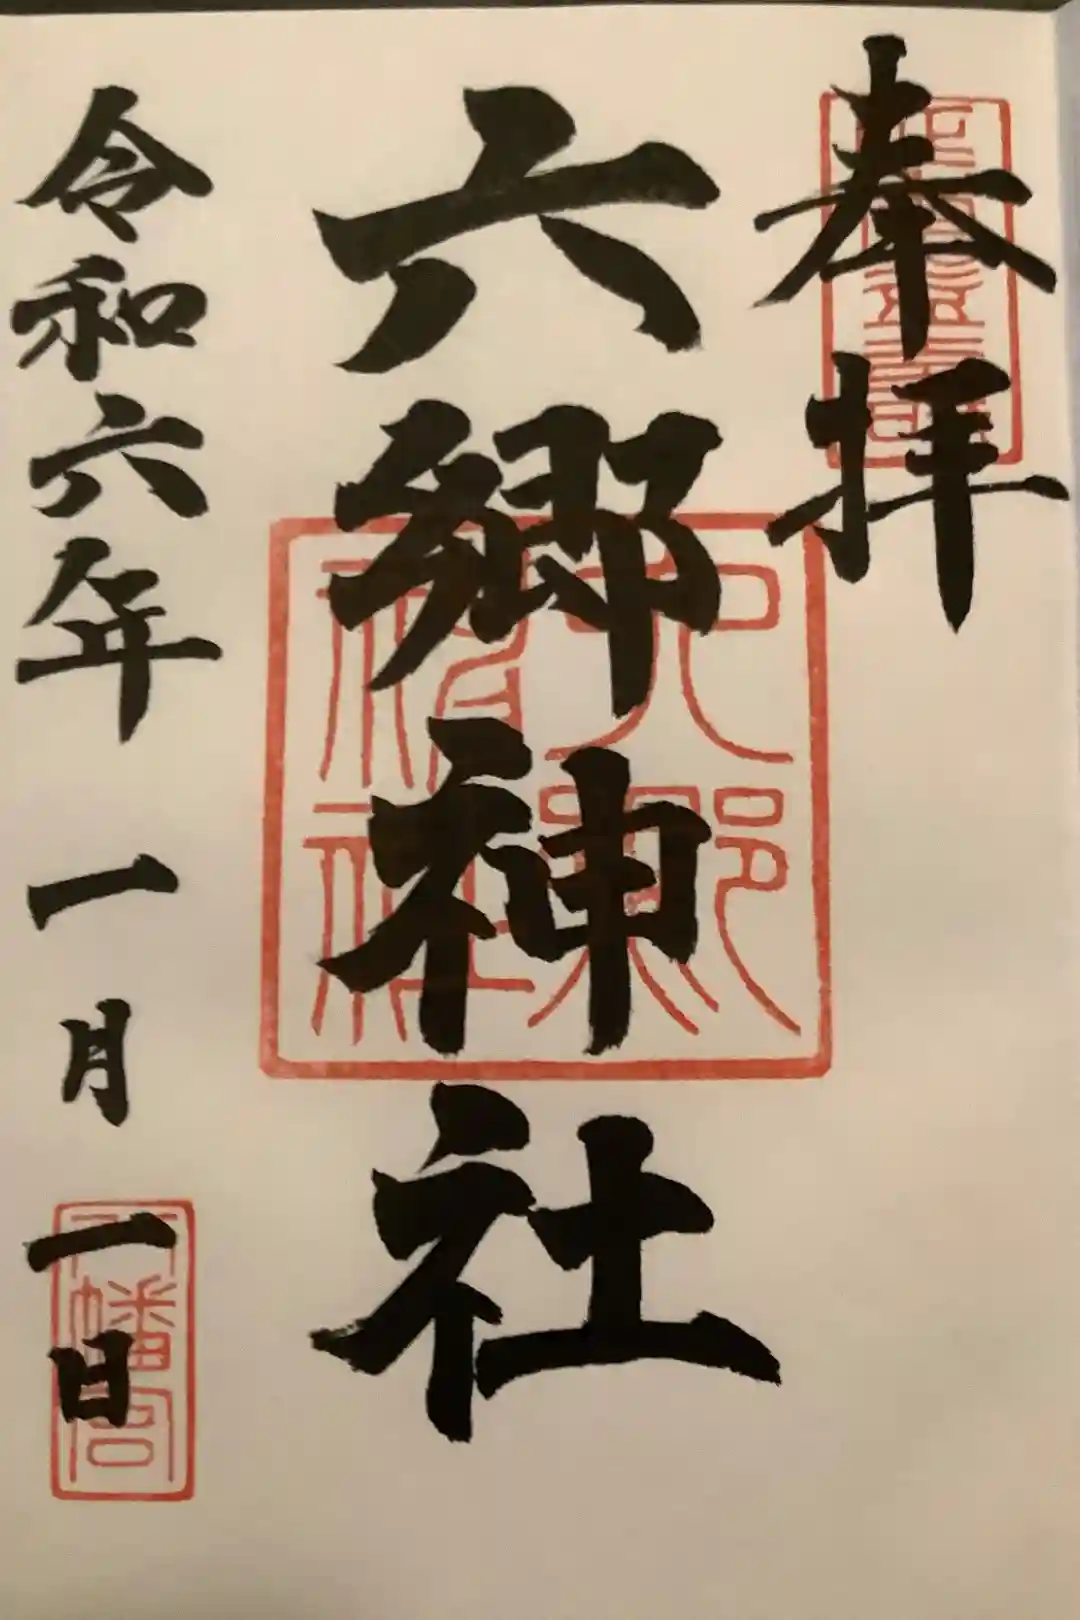 奉拝
六郷神社
六郷神社
令和六年 一月 一日
八幡宮